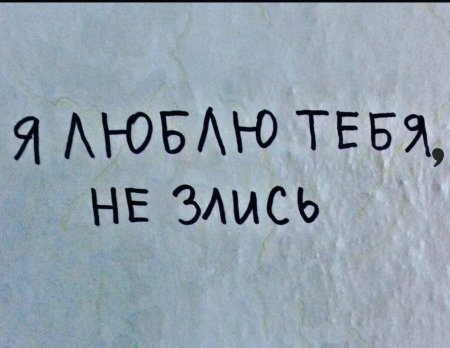 Я ЛЮБЛЮ ТЕБЯ,
НЕ ЗЛИСЬ